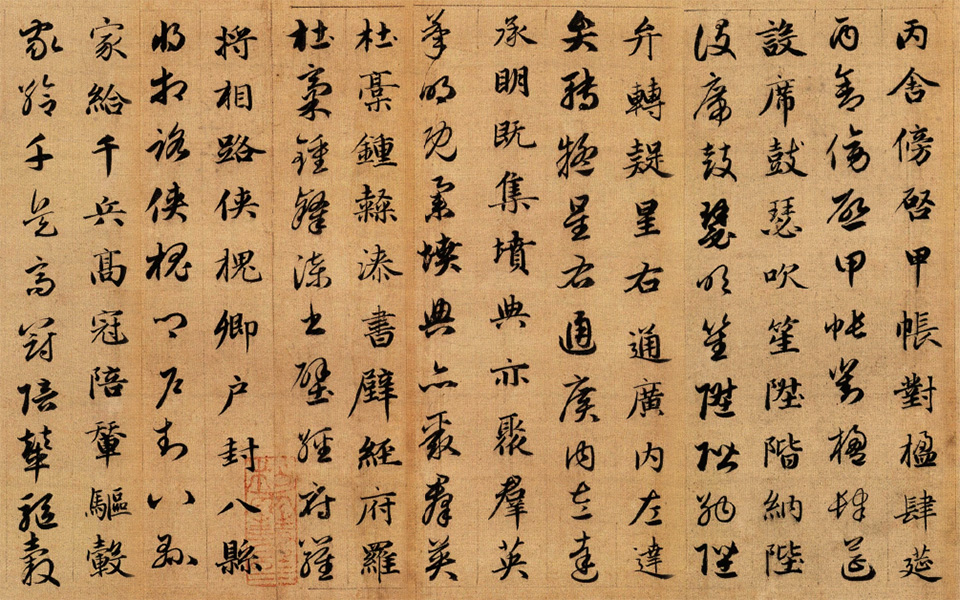 丙舍傍啓甲帳對楹肆筵
丙舍傍啓甲帳對楹肆筵
設席鼓瑟吹笙陞階納陛
設席鼓瑟吹笙陞階納陛
弁轉疑星右通廣内左達
弁轉疑星右通廣内左達
承明既集墳典亦聚羣英
承明既集墳典亦聚羣英
杜稾鍾隸漆書壁經府羅
杜稾鍾隸漆書壁經府羅
將相路俠槐卿戶封八縣
將相路俠槐卿戶封八縣
家給千兵髙冠陪輦驅轂
家給千兵高冠陪輦驅轂